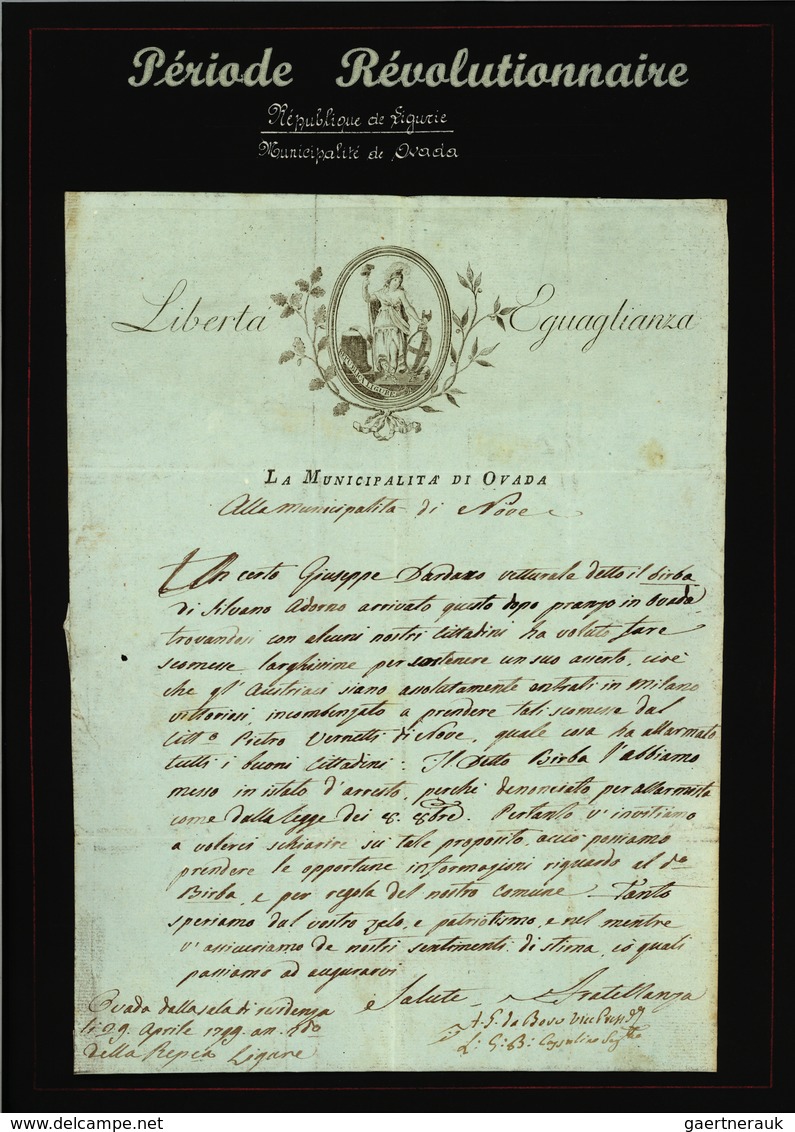 Période Révolutionnaire
République de Ligurie
Municipalité de Ovada
Libertà Eguaglianza
LA MUNICIPALITÀ DI OVADA
Alla Municipalità di Nove
Un certo Giuseppe Dardazo vetturale detto il Birba
di Silvano Adorno arrivato questo dopo pranzo in Ovada
trovandosi con alcuni nostri Cittadini ha voluto fare
scomesse larghissime per sostenere un suo asserto, cioè
che gl' Austriaci siano assolutamente entrati in Milano
vittoriosi, incombenzato a prendere tali scomesse dal
Citt.o Pietro Vernetti di Nove, quale cosa ha allarmato
tutti i buoni Cittadini: Il detto Birba l'abbiamo
messo in istato d'arresto, perchè denonciato per allarmista
come dalla legge dei 8. 8bre. Pertanto v'invitiamo
a volerci schiarire su tale proposito, acciò possiamo
prendere le opportune informazioni riguardo al d.o
Birba, e per regola del nostro comune. Tanto
speriamo dal vostro zelo, e patriotismo, e nel mentre
v'assicuriamo de nostri sentimenti di stima, co quali
passiamo ad augurarvi
Salute e Fratellanza
Ovada dalla sala di residenza
li 29. Aprile 1799. an. 2do
della Repca Ligure
gaertnerauk